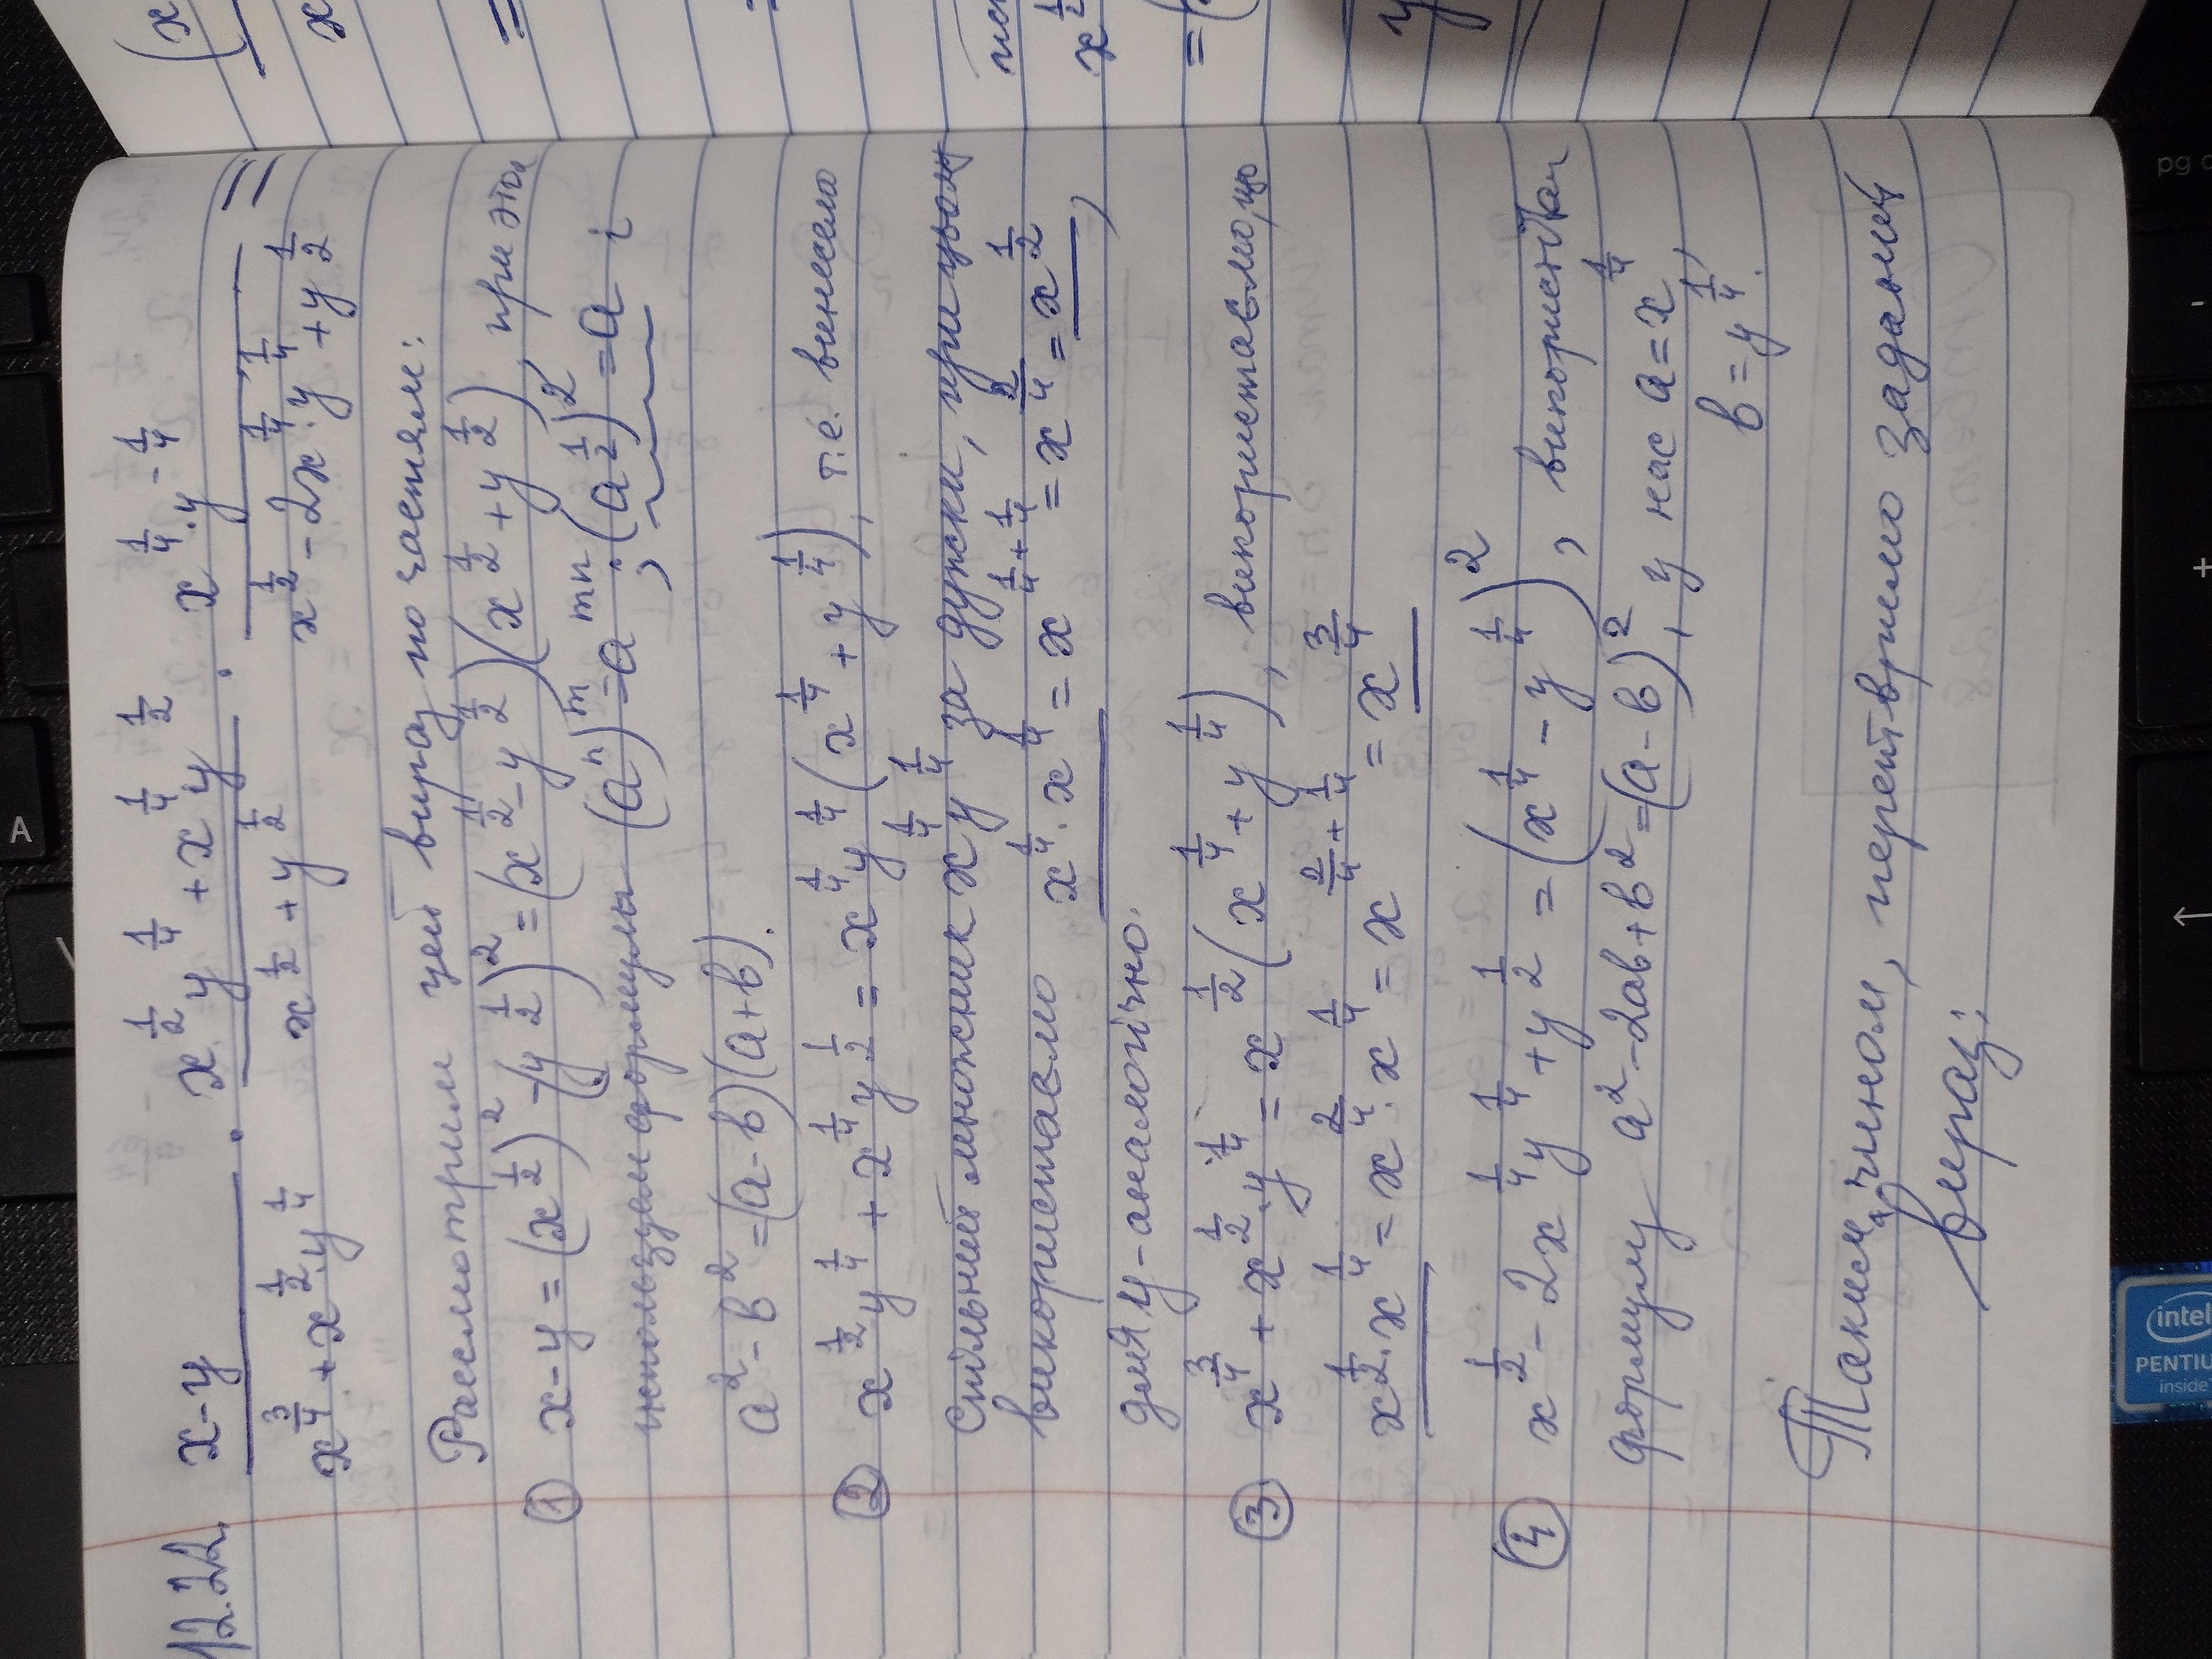 12.22. (x-y)/(x^(3/4)+x^(1/2)·y^(1/4)) · (x^(1/2)y^(1/4)+x^(1/4)y^(1/2))/(x^(1/2)+y^(1/2)) · (x^(1/4)·y^(-1/4))/(x^(1/2)-2x^(1/4)·y^(1/4)+y^(1/2)) =
Рассмотрим цей вираз по частям:
① x-y=(x^(1/2))^2-(y^(1/2))^2=(x^(1/2)-y^(1/2))(x^(1/2)+y^(1/2)), при этом
используем формулы (a^n)^m=a^(mn); (a^(1/2))^2=a і
a^2-b^2=(a-b)(a+b).
② x^(1/2)y^(1/4)+x^(1/4)y^(1/2)=x^(1/4)y^(1/4)(x^(1/4)+y^(1/4)), т.е. винесемо
Спільний множник x^(1/4)y^(1/4) за дужки, при цьому
використаємо x^(1/4)·x^(1/4)=x^(1/4+1/4)=x^(2/4)=x^(1/2),
для y-аналогічно.
③ x^(3/4)+x^(1/2)·y^(1/4)=x^(1/2)(x^(1/4)+y^(1/4)), використаємо, що
x^(1/2)·x^(1/4)=x^(2/4)·x^(1/4)=x^(2/4+1/4)=x^(3/4)
④ x^(1/2)-2x^(1/4)y^(1/4)+y^(1/2)=(x^(1/4)-y^(1/4))^2,
формулу a^2-2ab+b^2=(a-b)^2, у нас a=x^(1/4),
b=y^(1/4).
Таким чином, перетвримо заданий
вираз:
(x
x
=
x^(1/2)
=(
y
A
pg
-
+
←
intel
PENTIU
inside